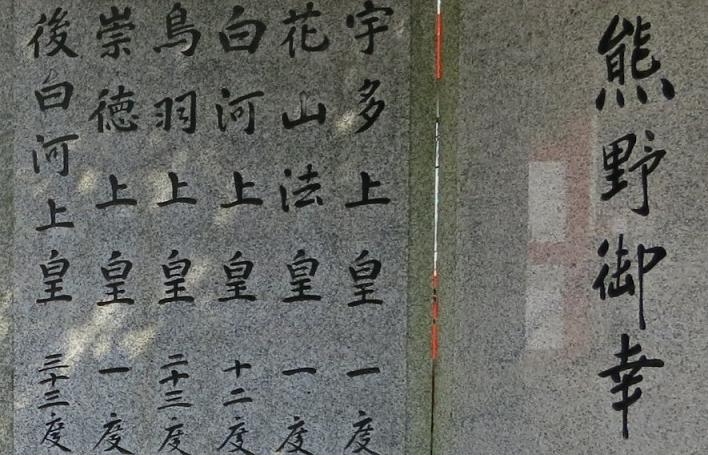 熊野御幸
宇多上皇 一度
花山法皇 一度
白河上皇 十二度
鳥羽上皇 二十三度
崇徳上皇 一度
後白河上皇 三十三度